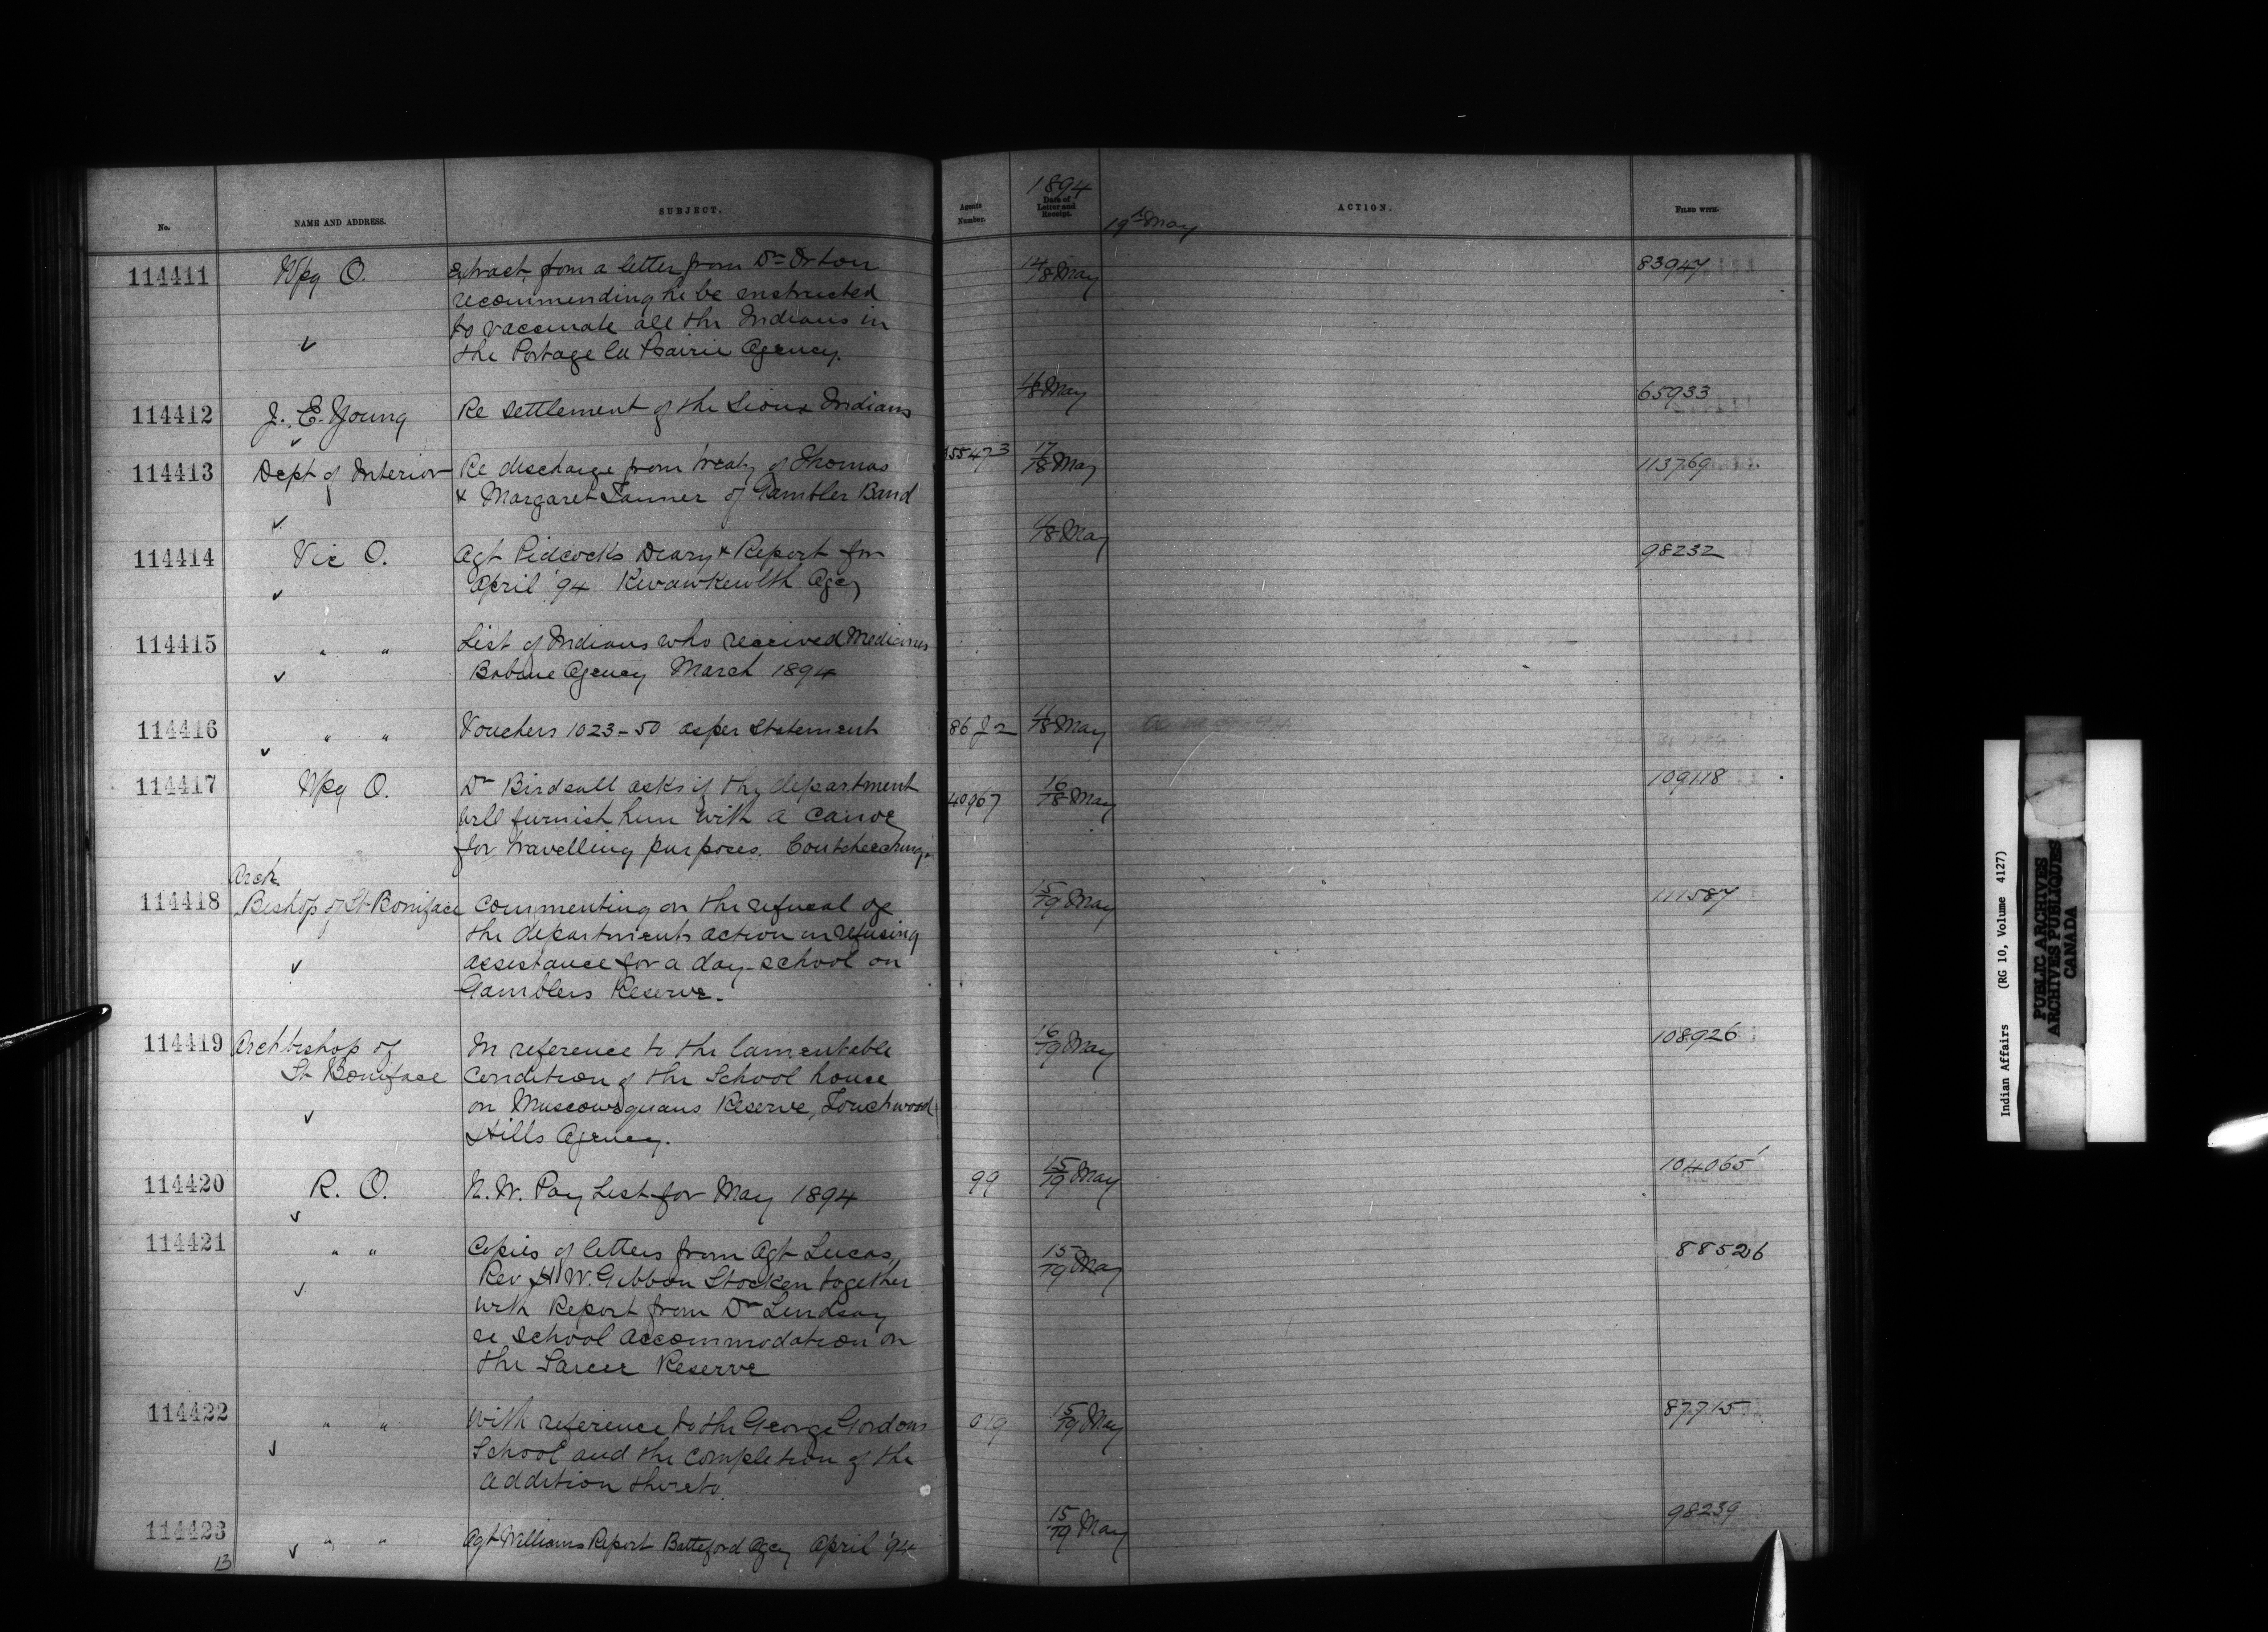 No.
NAME AND ADDRESS.
SUBJECT.
Agents Number.
1894
Date of Letter and Receipt.
19th May
ACTION.
FILED WITH.
114411 Wpg O. Extract from a letter from Dr Orton 14/18 May 83947
recommending he be instructed
to vaccinate all the Indians in
the Portage la Prairie Agency.
114412 J. E. Young Re settlement of the Sioux Indians 16/18 May 65933
114413 Dept of Interior Re discharge from treaty of Thomas 355473 17/18 May 113769
& Margaret Tanner of Gambler Band
114414 Vic O. Agt Pidcocks Diary & Report for 11/18 May 98232
April '94 Kwawkewlth Agcy
114415 " " List of Indians who received Medicines
Babine Agency March 1894
114416 " " Vouchers 1023-50 as per statement 86 J2 11/18 May
114417 Wpg O. Dr Birdsall asks if the department 40067 16/18 May 109118
will furnish him with a canoe
for travelling purposes. Coutcheeching.
Arch
114418 Bishop of St Boniface Commenting on the refusal of 15/19 May 111587
the departments action in refusing
assistance for a day-school on
Gamblers Reserve.
114419 Archbishop of In reference to the lamentable 16/19 May 108926
St Boniface condition of the School house
on Muscowequans Reserve, Touchwood
Hills Agency.
114420 R. O. N.W. Pay List for May 1894 99 15/19 May 104065
114421 " " Copies of letters from Agt Lucas, 15/19 May 88526
Rev H.W. Gibbon Stocken together
with Report from Dr Lindsay
re school accommodation on
the Sarcee Reserve
114422 " " With reference to the George Gordons 019 15/19 May 87715
School and the completion of the
addition thereto.
114423 " " Agt Williams Report Battleford Agcy April '94 15/19 May 98239
13
Indian Affairs (RG 10, Volume 4127)
PUBLIC ARCHIVES
ARCHIVES PUBLIQUES
CANADA